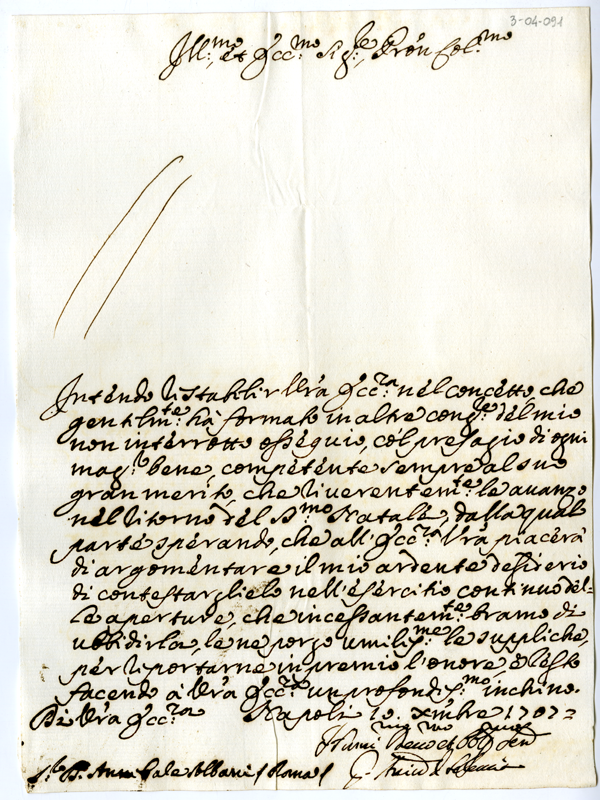 3-04-091
Ill.mo, et Ecc.mo Sig.re, Pron Col.mo
Intendo ristabilir V'ra Ecc.za nel concetto che
gentilm.te hà formato in altre cong.re del mio
non interrotto ossequio, col presagio di ogni
mag.r bene, competente sempre al suo
gran merito, che riverentem.te le avanzo
nel ritorno del S.mo Natale, dalla qual
parte sperando, che all'Ecc.za V'ra piacerà
di argomentare il mio ardente desiderio
di contestarglielo nell'esercitio continuo del-
le aperture, che incessantem.te bramo di
ubbidirla, le ne porgo umilis.me le suppliche,
per riportarne in premio l'onore, e resto
facendo à V'ra Ecc.za un profondis.mo inchino.
Di V'ra Ecc.za Napoli 10. Xmbre 1707=
Humi.mo Devo.mo et Obb.mo Ser
S.r D. Annibale Albani (Roma)